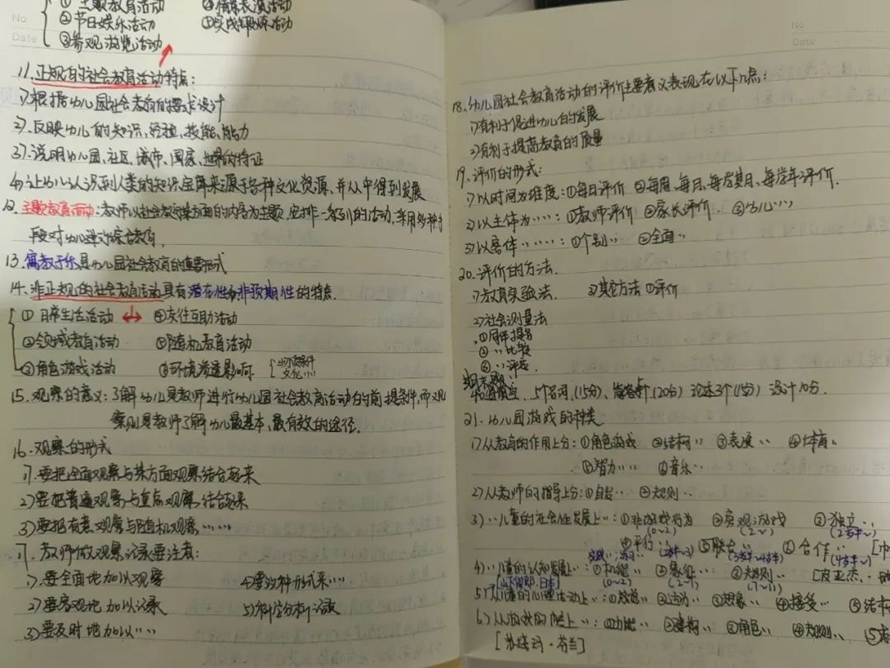 ①主题教育活动 ④情景表演活动
②节日娱乐活动 ⑤实践锻炼活动
③参观游览活动
11.正规的社会教育活动特点：
1)根据幼儿园社会教育的要求设计
2).反映幼儿的知识、经验、技能、能力
3).说明幼儿园、社区、城市、国家、世界的特征
4)让幼儿认识到人类的知识宝库来源于各种文化资源、并从中得到发展
12.主题教育活动：教师以社会教育某方面的内容为主题，安排一系列的活动，采用多种手
段对幼儿进行综合教育.
13.寓教于乐是幼儿园社会教育的重要形式
14.非正规的社会教育活动具有潜在性和非预期性的特点.
①日常生活活动 ④交往互助活动
②领域教育活动 ⑤随机教育活动
③角色游戏活动 ⑥环境渗透影响
15.观察的意义：了解幼儿是教师进行幼儿园社会教育活动的前提条件，而观
察则是教师了解幼儿最基本、最有效的途径.
16.观察的形式
1).要把全面观察与某方面观察结合起来
2)要把普遍观察与重点观察结合起来
3)要把有意观察与随机观察……
17.教师做观察记录要注意：
1).要全面地加以观察 4)要以种形式来……
2)要客观地加以记录 5)科学分析记录
3)要及时地加以……
No
Date
18.幼儿园社会教育活动的评价主要意义表现在以下几点：
1)有利于促进幼儿的发展
2)有利于提高教育的质量
19.评价的形式：
1)以时间为维度：①每日评价 ②每周、每月、每学期、每学年评价.
2)以主体为……：①教师评价 ②家长评价 ③幼儿……
3)以客体……：①个别.. ②全面..
20.评价的方法.
1)教育实验法. 3)其它方法 ①评价
2)社会测量法
①同伴提名
②..比较
③..评定
期末题
5个名词,(15分) (20分) 论述3个(15分) 设计10分.
21.幼儿园游戏的种类
1)从教育的作用上分：①角色游戏 ②结构.. ③表演.. ④体育..
⑤智力.. ⑥音乐..
2)从教师的指导上分：①自发.. ②规则..
3)..儿童的社会性发展上..：①非游戏行为 ②旁观游戏 ③独立..
(0~2) (2~)
④平行.. ⑤联合.. ⑥合作..
4)..儿童的认知发展..：①机能.. ②象征.. ③规则.. [皮亚杰.
(0~2) (2~7) (7~11)
5)从儿童的心理活动上..： ②运动.. ③想象.. ④接受.. ⑤结构
6)从游戏的..上..：①功能.. ②建构.. ③角色.. ④规则..